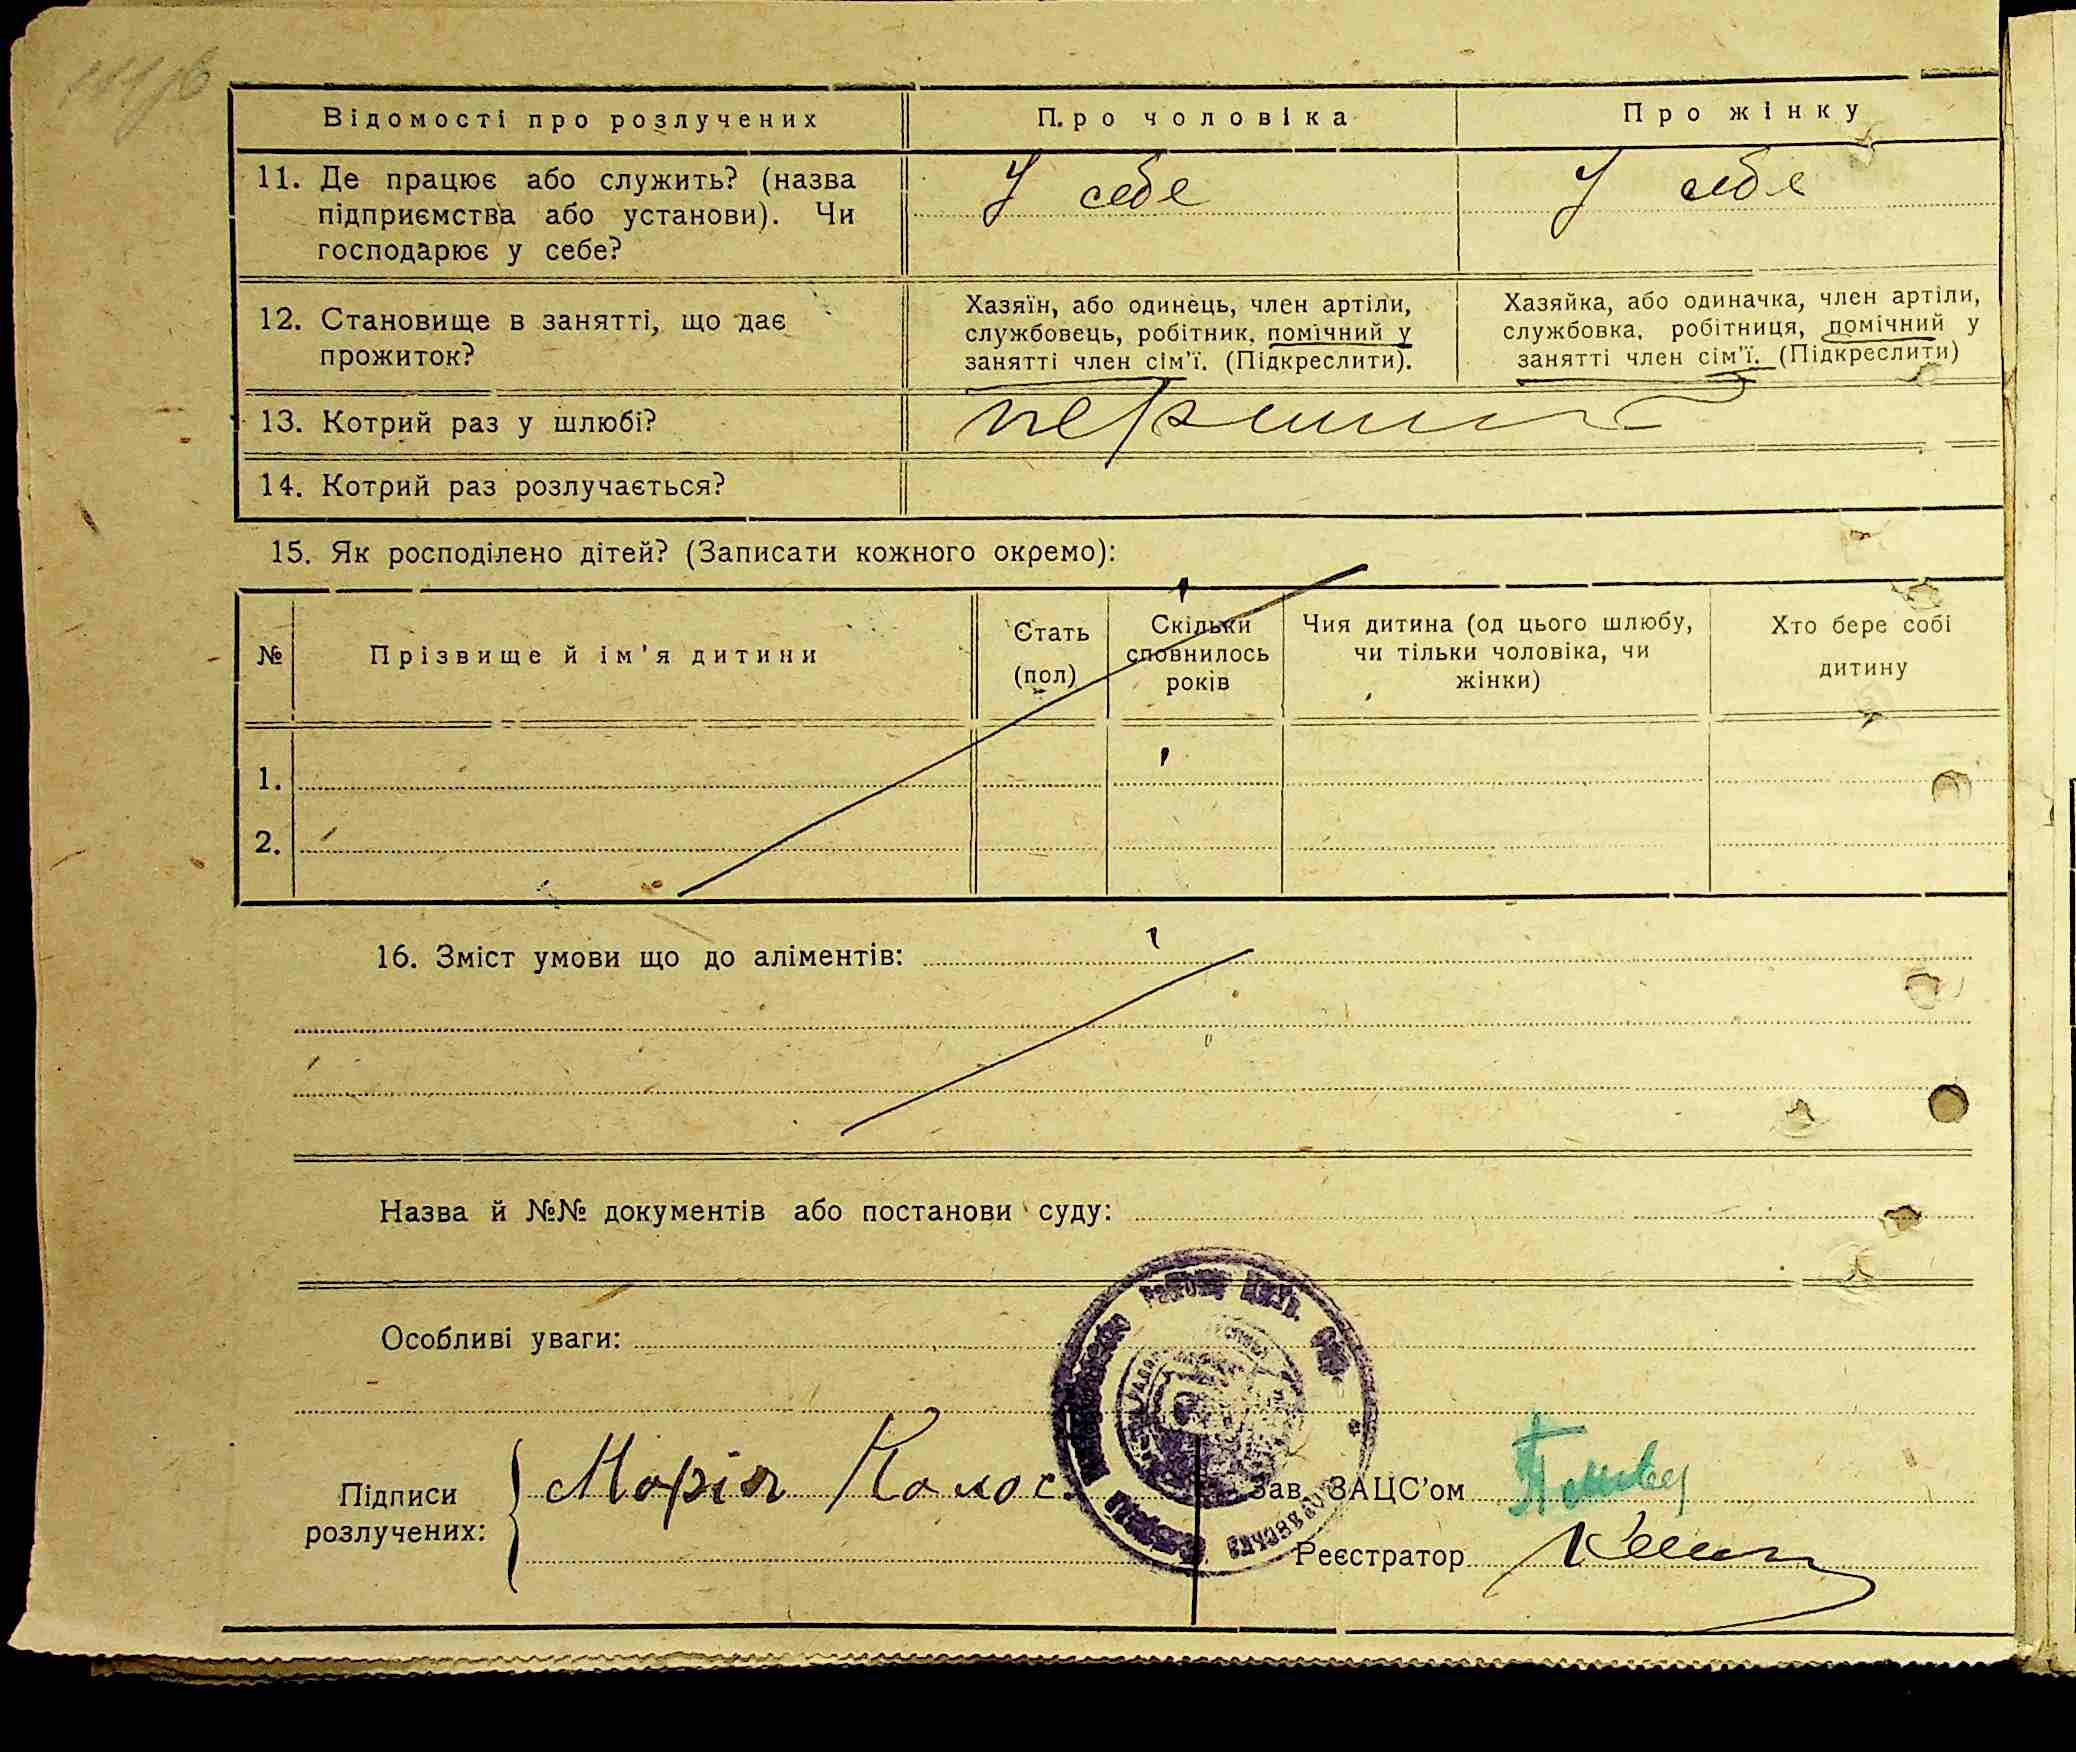 Відомості про розлучених
Про чоловіка
Про жінку
11. Де працює або служить? (назва
підприємства або установи). Чи
господарює у себе?
У себе
У себе
12. Становище в занятті, що дає
прожиток?
Хазяїн, або одинець, член артіли,
службовець, робітник, помічний у
занятті член сім'ї. (Підкреслити).
Хазяйка, або одиначка, член артіли,
службовка, робітниця, помічний у
занятті член сім'ї. (Підкреслити)
13. Котрий раз у шлюбі?
перший
14. Котрий раз розлучається?
15. Як росподілено дітей? (Записати кожного окремо):
№
Прізвище й ім'я дитини
Стать
(пол)
Скільки
сповнилось
років
Чия дитина (од цього шлюбу,
чи тільки чоловіка, чи
жінки)
Хто бере собі
дитину
1.
2.
16. Зміст умови що до аліментів:
Назва й №№ документів або постанови суду:
Особливі уваги:
Підписи
розлучених:
Марія Колос.
Зав. ЗАЦС'ом
Реєстратор